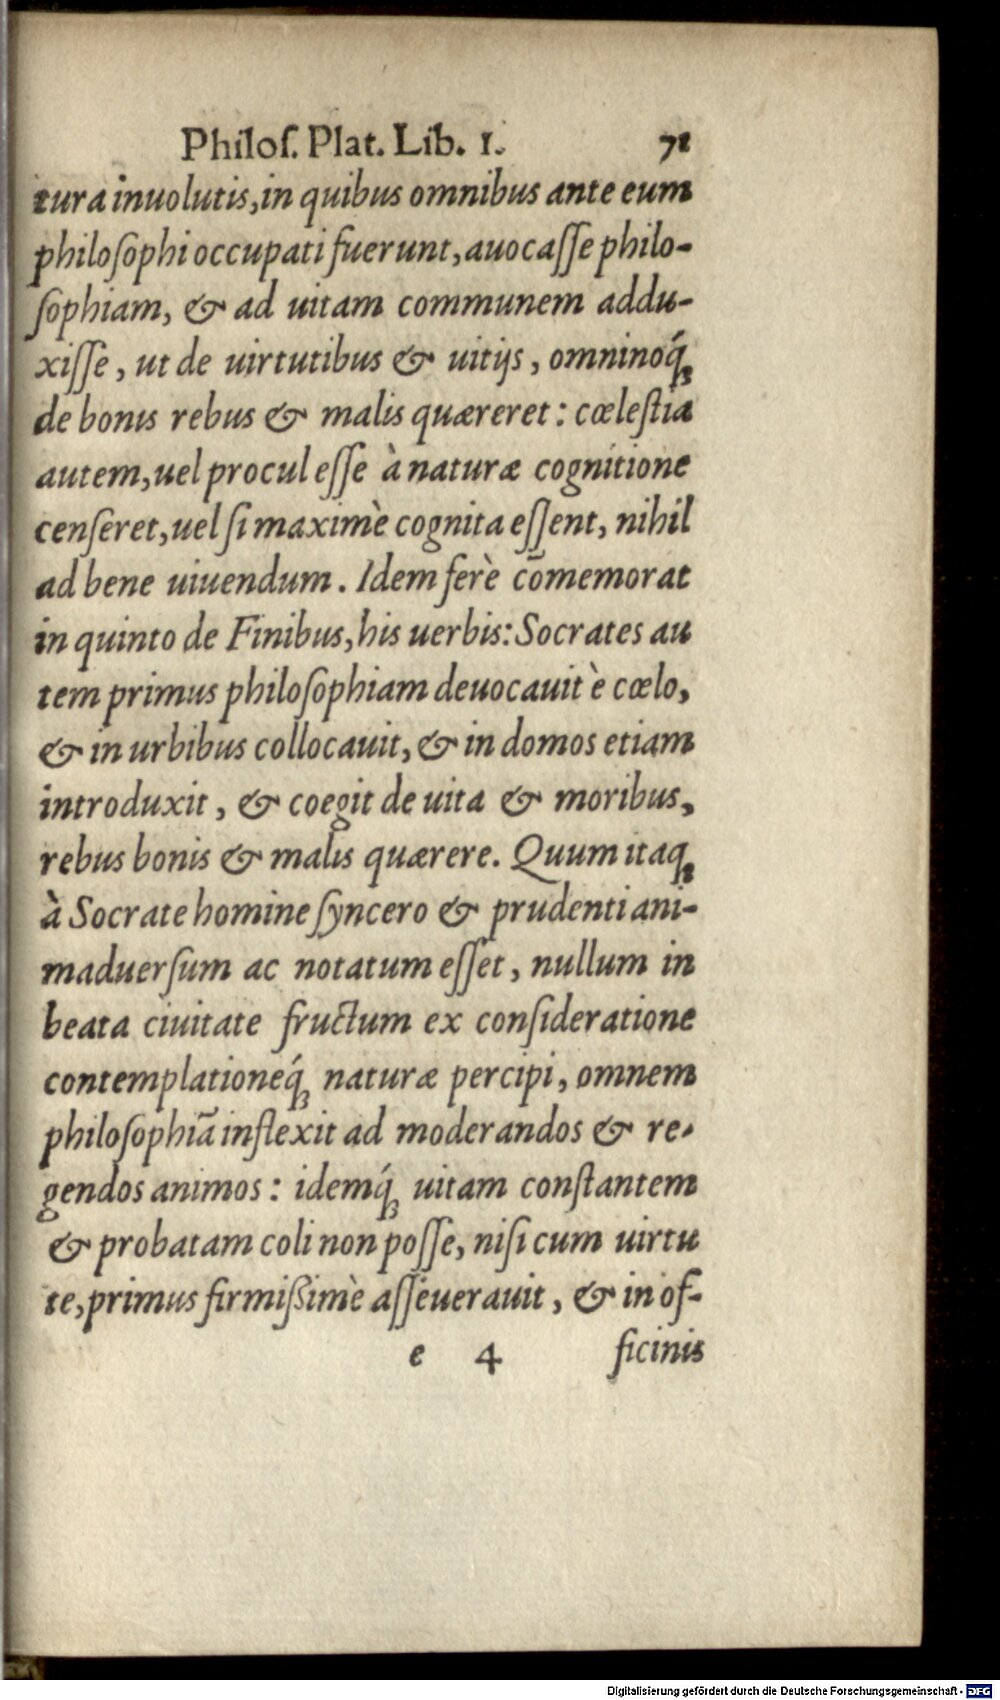 Philoſ. Plat. Lib. 1. 71
tura inuolutis, in quibus omnibus ante eum
philoſophi occupati fuerunt, auocaſſe philo-
ſophiam, & ad uitam communem addu-
xiſſe, ut de uirtutibus & uitijs, omninoq́ꝫ
de bonis rebus & malis quæreret: cœleſtia
autem, uel procul eſſe à naturæ cognitione
cenſeret, uel ſi maximè cognita eſſent, nihil
ad bene uiuendum. Idem ferè cōmemorat
in quinto de Finibus, his uerbis: Socrates au
tem primus philoſophiam deuocauit è cœlo,
& in urbibus collocauit, & in domos etiam
introduxit, & coegit de uita & moribus,
rebus bonis & malis quærere. Quum itaqꝫ
à Socrate homine ſyncero & prudenti ani-
maduerſum ac notatum eſſet, nullum in
beata ciuitate fructum ex conſideratione
contemplationeq́ꝫ naturæ percipi, omnem
philoſophiā inflexit ad moderandos & re-
gendos animos: idemq́ꝫ uitam conſtantem
& probatam coli non poſſe, niſi cum uirtu
te, primus firmißimè aſſeuerauit, & in of-
e 4 ficinis
Digitalisierung gefördert durch die Deutsche Forschungsgemeinschaft - DFG